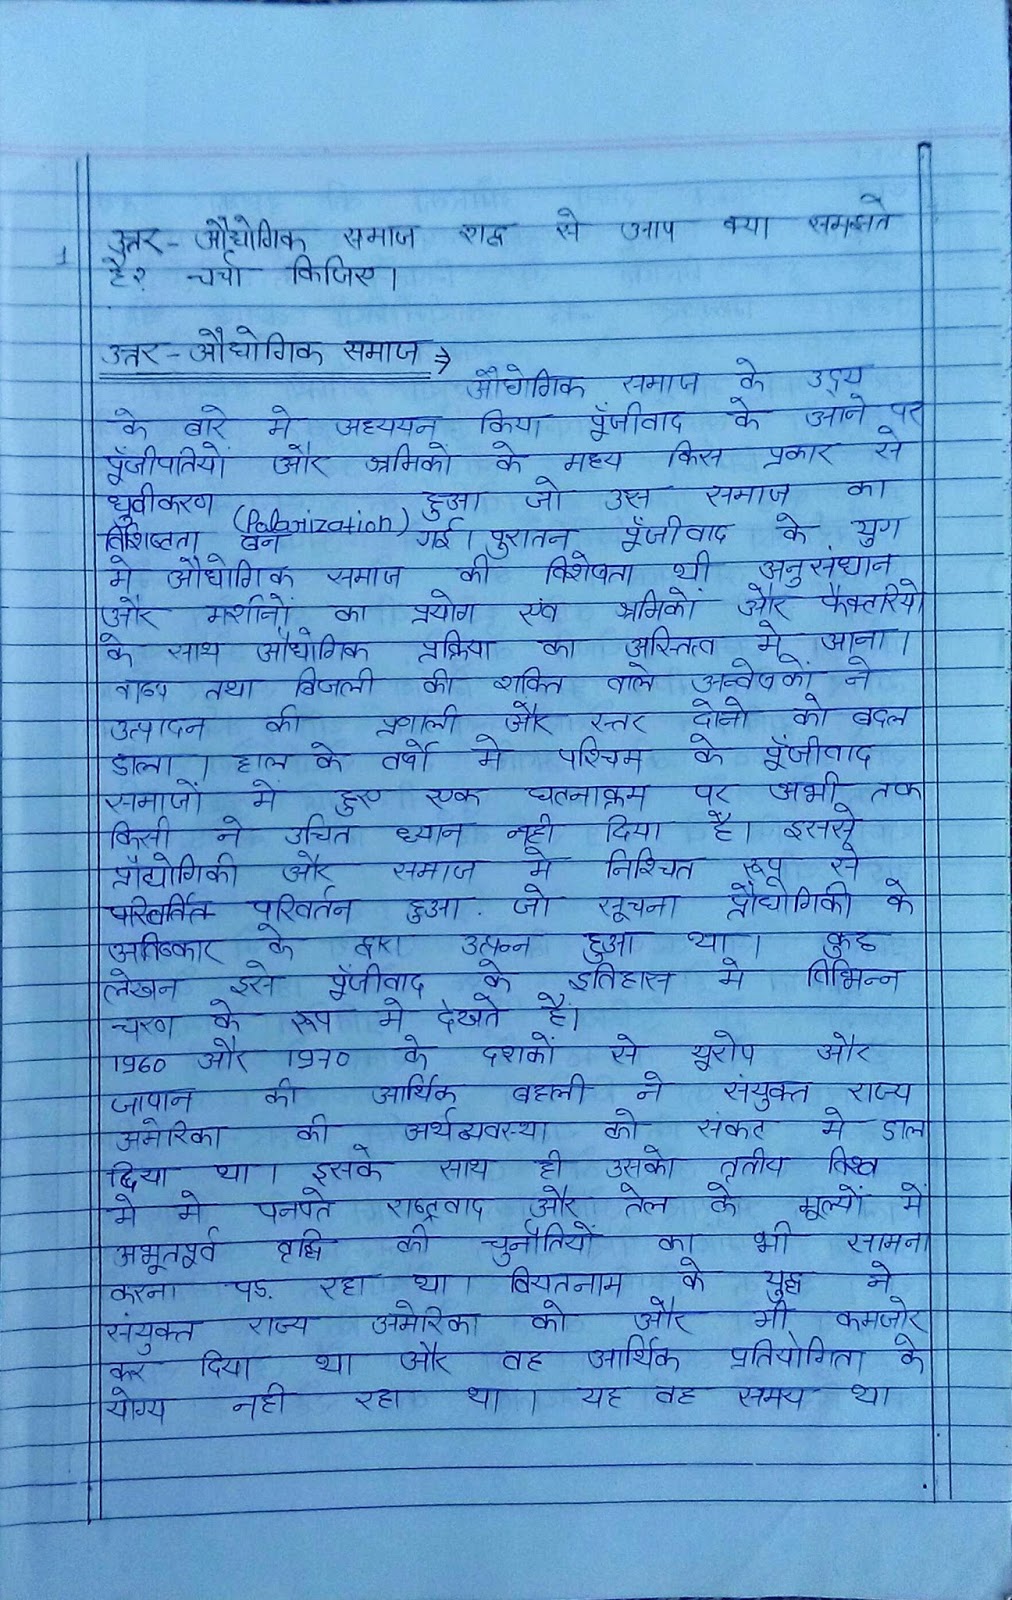 1 उत्तर-औद्योगिक समाज शब्द से आप क्या समझते
है? चर्चा किजिए।
उत्तर-औद्योगिक समाज ⇒
औद्योगिक समाज के उदय
के बारे मे अध्ययन किया पूँजीवाद के आने पर
पूँजीपतियों और श्रमिकों के मध्य किस प्रकार से
ध्रुवीकरण (Polarization) हुआ जो उस समाज का
विशिष्टता बन गई। पुरातन पूँजीवाद के युग
मे औद्योगिक समाज की विशेषता थी अनुसंधान
और मशीनों का प्रयोग एंव श्रमिकों और फैक्टरियो
के साथ औद्योगिक प्रक्रिया का अस्तित्व मे आना।
वाष्प तथा बिजली की शक्ति वाले अन्वेषकों ने
उत्पादन की प्रणाली और स्तर दोनो को बदल
डाला। हाल के वर्षो मे पश्चिम के पूँजीवाद
समाजों में हुए एक घटनाक्रम पर अभी तक
किसी ने उचित ध्यान नही दिया है। इससे
प्रौद्योगिकी और समाज मे निश्चित रूप से
परिवर्तित परिवर्तन हुआ. जो सूचना प्रौद्योगिकी के
आविष्कार के द्वारा उत्पन्न हुआ था। कुछ
लेखन इसे पूँजीवाद के इतिहास मे विभिन्न
चरण के रूप मे देखते हैं।
1960 और 1970 के दशकों से यूरोप और
जापान की आर्थिक बहाली ने संयुक्त राज्य
अमेरिका की अर्थव्यवस्था को संकट मे डाल
दिया था। इसके साथ ही उसको तृतीय विश्व
मे मे पनपते राष्ट्रवाद और तेल के मूल्यों में
अभूतपूर्व वृद्धि की चुनौतियों का भी सामना
करना पड़ रहा था। वियतनाम के युद्ध ने
संयुक्त राज्य अमेरिका को और भी कमजोर
कर दिया था और वह आर्थिक प्रतियोगिता के
योग्य नही रहा था। यह वह समय था